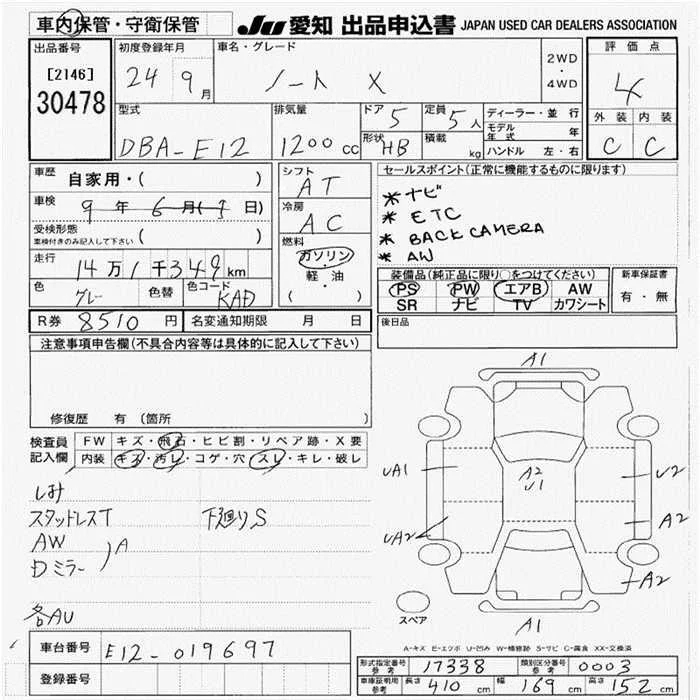 車内保管・守衛保管
JU 愛知 出品申込書 JAPAN USED CAR DEALERS ASSOCIATION
出品番号
[2146]
30478
初度登録年月
24 9月
車名・グレード
ノート X
2WD
・
4WD
評価点
4
外装 内装
C C
型式
DBA-E12
排気量
1200cc
ドア 5
形状 HB
定員 5人
積載 kg
ディーラー・並行
モデル年式 年
ハンドル 左・右
車歴 自家用・( )
車検 9年 6月( 日)
受検形態
車検付きのみ記入して下さい ( )
走行 14万1千349km
色 グレー
色替
色コード KAD
シフト
AT
冷房
AC
燃料
ガソリン
・
軽・油
( )
セールスポイント(正常に機能するものに限ります)
* ナビ
* ETC
* BACK CAMERA
* AW
装備品(純正品に限り○をつけてください)
PS PW エアB AW
SR ナビ TV カワシート
新車保証書
有・無
R券 8510円
名変通知期限 月 日
後日品
注意事項申告欄(不具合内容等は具体的に記入して下さい)
修復歴 有(箇所 )
検査員
記入欄
FW キズ・飛石・ヒビ割・リペア跡・X要
内装 キズ・汚レ・コゲ・穴・スレ・キレ・破レ
しみ
スタッドレスT 下廻りS
AW
Dミラー A
各AU
A1
UA1
A2
U1
U2
UA2
A2
A2
A1
スペア
A-キズ E-エクボ U-凹み W-補修跡 S-サビ C-腐食 XX-交換済
車台番号 E12-019697
登録番号
形式指定番号 参考 17338
類別区分番号 参考 0003
車庫証明用 参考 長さ 410cm 幅 169cm 高さ 152cm